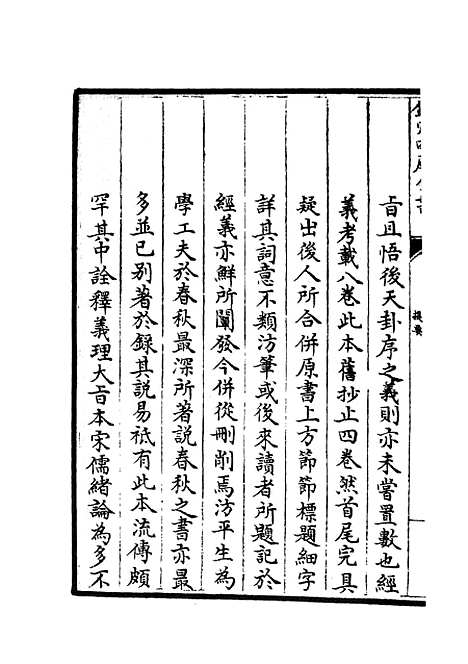 提要
旨且悟後天卦序之義則亦未嘗置數也經
義考載八卷此本舊抄止四卷然首尾完具
疑出後人所合併原書上方節節標題細字
詳其詞意不類汸筆或後來讀者所題記於
經義亦鮮所闡發今併從刪削焉汸平生為
學工夫於春秋最深所著說春秋之書亦最
多並已别著於録其說易祗有此本流傳頗
罕其中詮釋義理大旨本宋儒緒論為多不